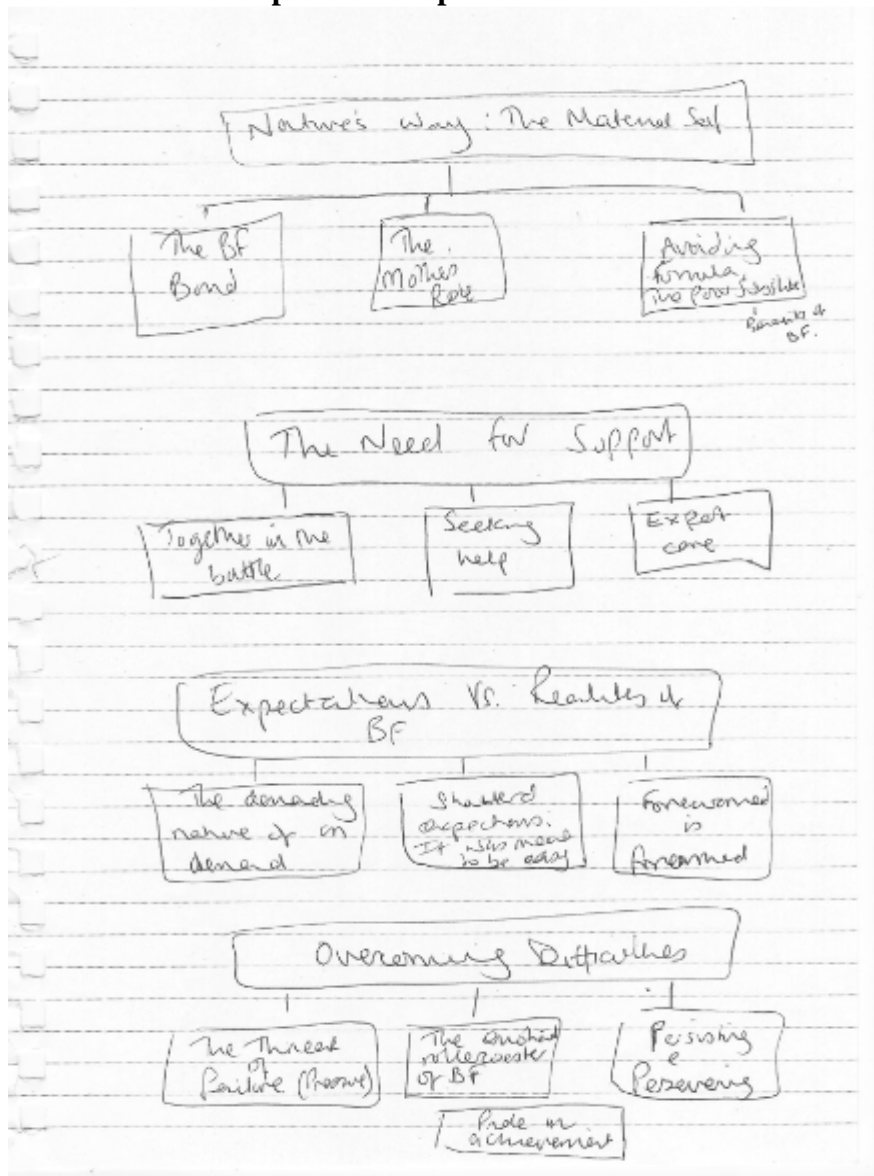 Nature's Way: The Maternal Self
The BF
Bond
The
Mother
Role
Avoiding
Formula,
The Poor Substitute
Benefits of
BF.
The Need for Support
Together in the
battle
Seeking
help
Expert
care
Expectations Vs. Realities of
BF
The demanding
nature of on
demand
Shattered
expectations.
It was meant
to be easy
Forewarned
is
forearmed
Overcoming Difficulties
The Threat
of
Failure (Pressure)
The emotional
rollercoaster
of BF
Persisting
&
Persevering
Pride in
achievement